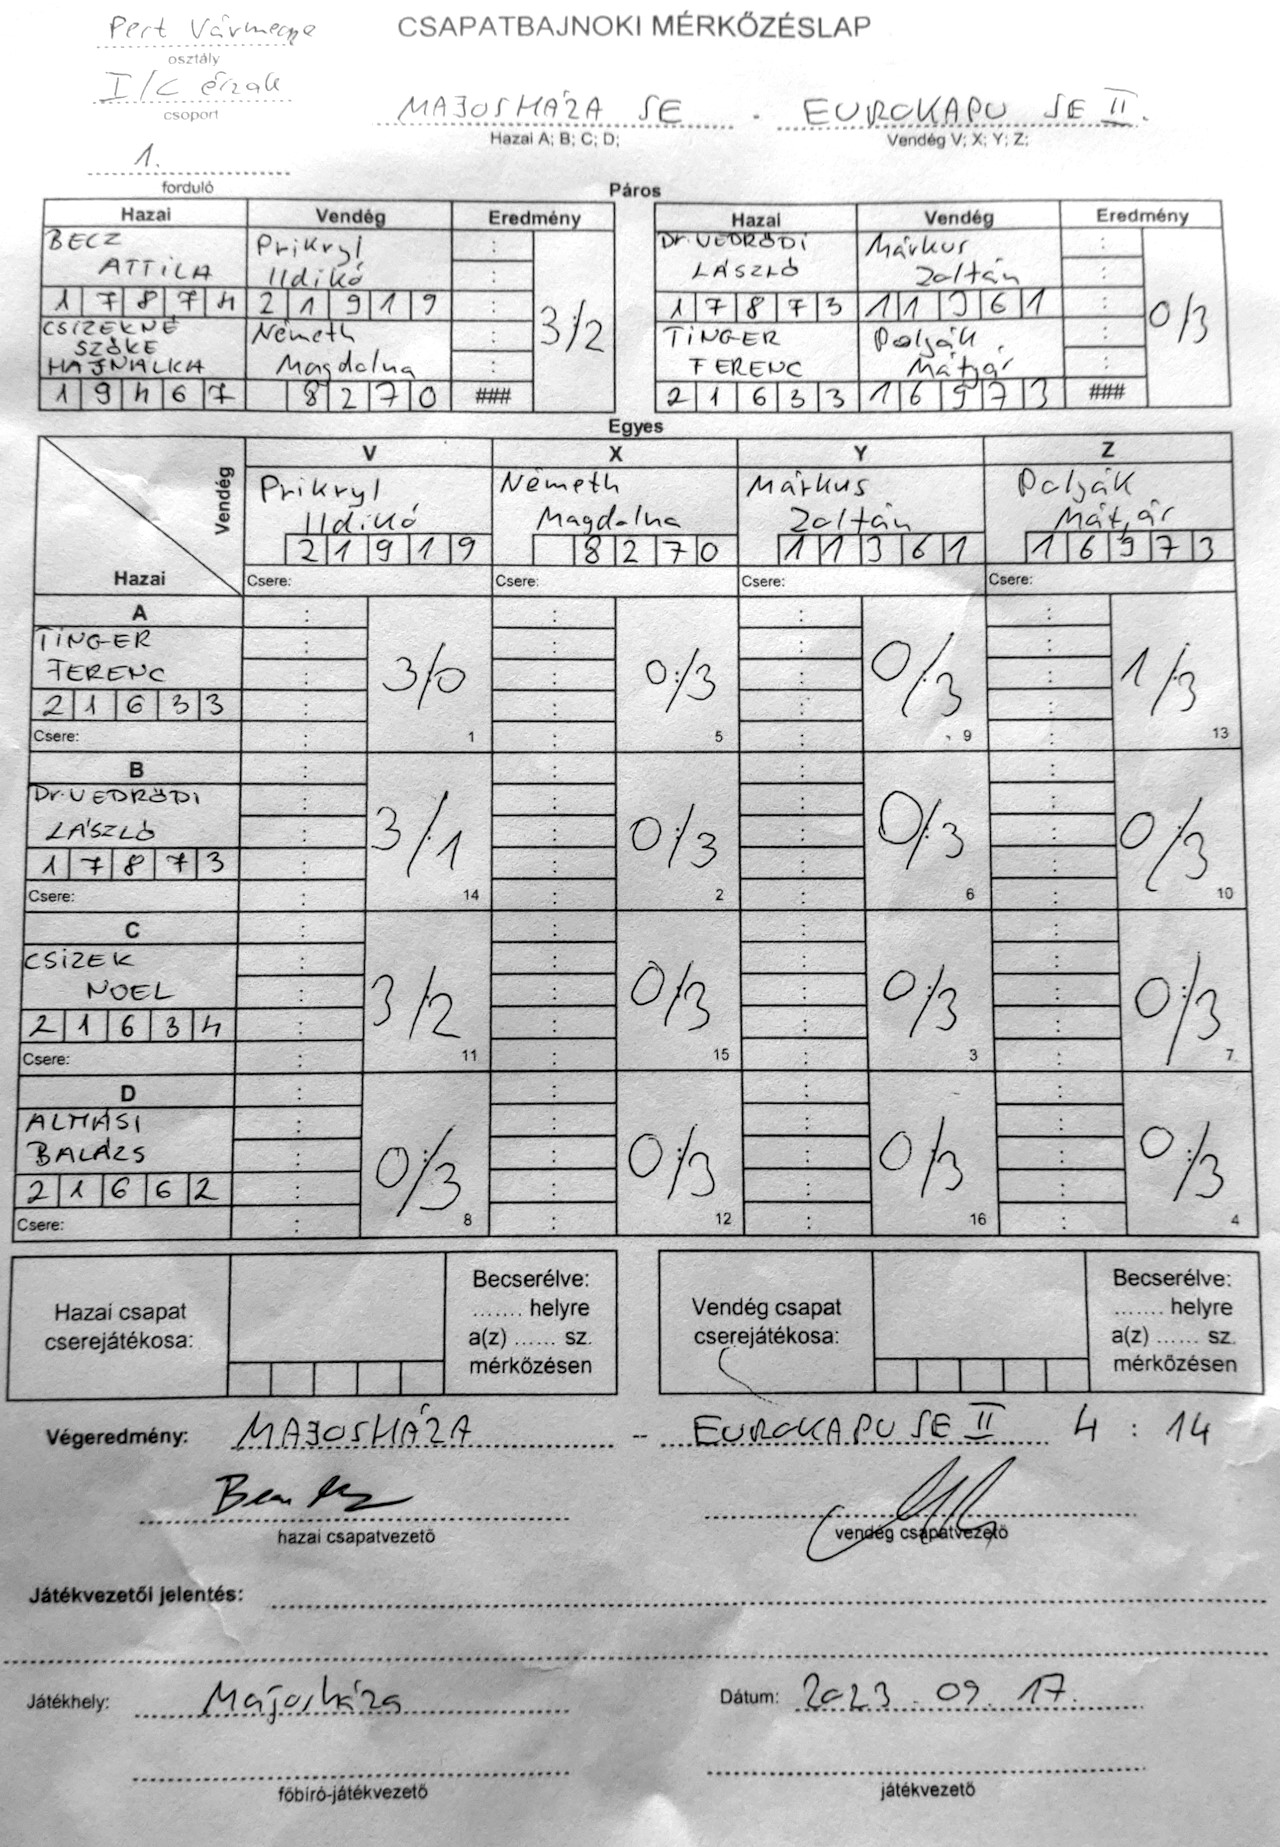 Pest Vármegye
osztály
I/C észak
csoport
1.
forduló
CSAPATBAJNOKI MÉRKŐZÉSLAP
MAJOSHÁZA SE - EUROKAPU SE II.
Hazai A; B; C; D; Vendég V; X; Y; Z;
Páros
Hazai Vendég Eredmény
BECZ ATTILA
17874
Prikryl Ildikó
21919
CSIZEKNÉ SZŐKE HAJNALKA
19467
Németh Magdolna
8270
###
3:/2
Hazai Vendég Eredmény
Dr. VEDRŐDI LÁSZLÓ
17873
Márkus Zoltán
11361
TINGER FERENC
21633
Polyák Mátyás
16973
###
0/3
Egyes
Vendég
Hazai
V X Y Z
Prikryl Ildikó
21919
Csere:
Németh Magdolna
8270
Csere:
Márkus Zoltán
11361
Csere:
Polyák Mátyás
16973
Csere:
A
TINGER
FERENC
21633
Csere:
3:/0 1
0:/3 5
0:/3 9
1:/3 13
B
Dr. VEDRŐDI
LÁSZLÓ
17873
Csere:
3:/1 14
0:/3 2
0:/3 6
0:/3 10
C
CSIZEK
NOEL
21634
Csere:
3:/2 11
0:/3 15
0:/3 3
0:/3 7
D
ALMÁSI
BALÁZS
21662
Csere:
0:/3 8
0:/3 12
0:/3 16
0:/3 4
Hazai csapat
cserejátékosa:
Becserélve:
....... helyre
a(z) ...... sz.
mérkőzésen
Vendég csapat
cserejátékosa:
Becserélve:
....... helyre
a(z) ...... sz.
mérkőzésen
Végeredmény: MAJOSHÁZA - EUROKAPU SE II 4 : 14
hazai csapatvezető vendég csapatvezető
Játékvezetői jelentés:
Játékhely: Majosháza Dátum: 2023. 09. 17.
főbíró-játékvezető játékvezető